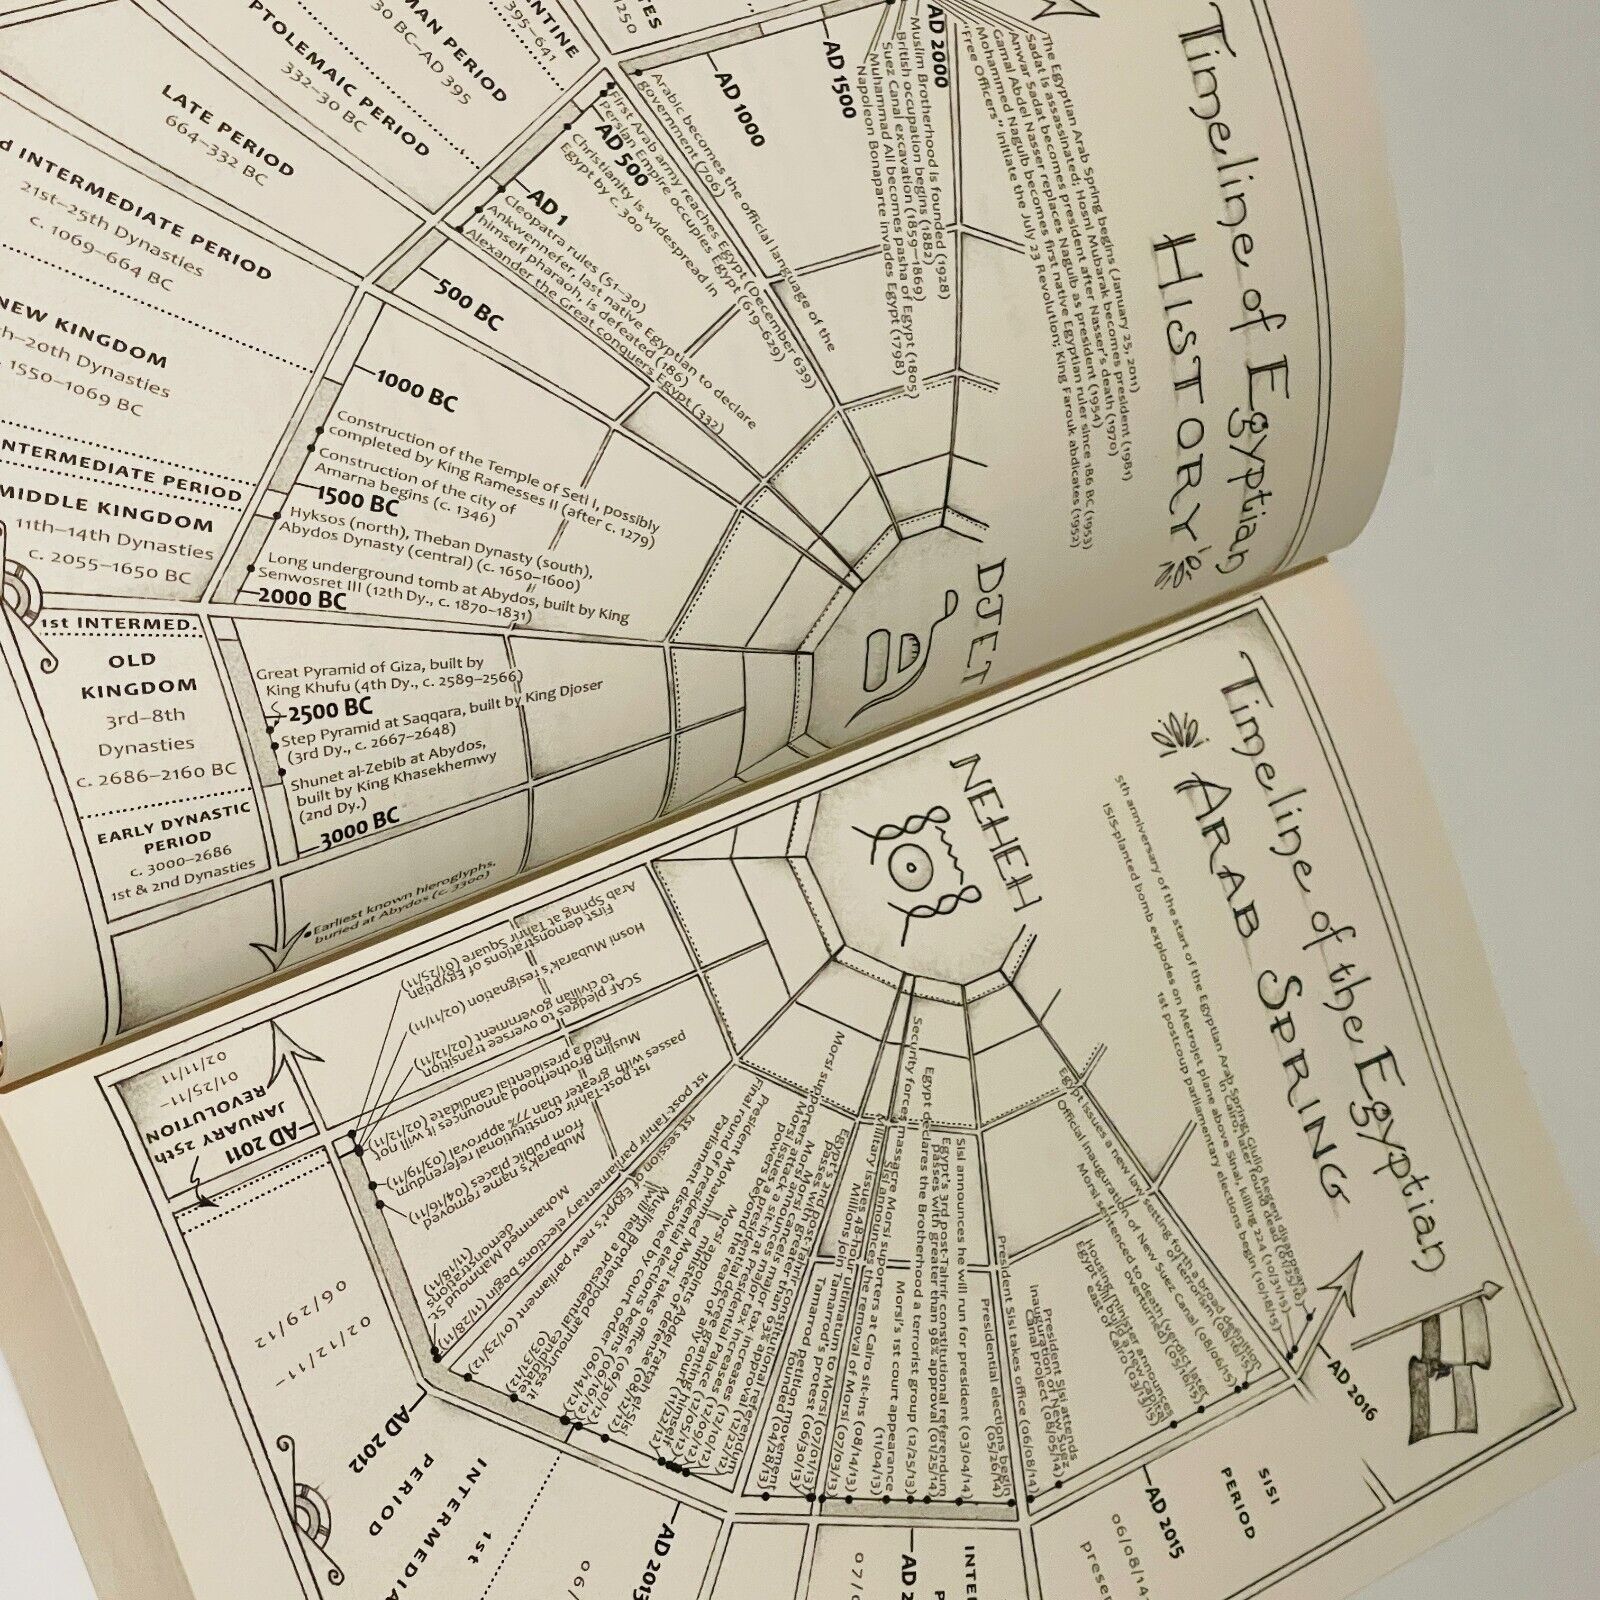 Timeline of Egyptian
HISTORY
DJET
The Egyptian Arab Spring begins (January 25, 2011)
Sadat is assassinated; Hosni Mubarak becomes president (1981)
Anwar Sadat becomes president after Nasser's death (1970)
Gamal Abdel Nasser replaces Naguib as president (1954)
Mohammed Naguib becomes first native Egyptian ruler since 186 BC (1953)
"Free Officers" initiate the July 23 Revolution; King Farouk abdicates (1952)
AD 2000
Muslim Brotherhood is founded (1928)
British occupation begins (1882)
Suez Canal excavation (1859–1869)
Muhammad Ali becomes pasha of Egypt (1805)
Napoleon Bonaparte invades Egypt (1798)
AD 1500
AD 1000
Arabic becomes the official language of the
government (706)
First Arab army reaches Egypt (December 639)
Persian Empire occupies Egypt (619–629)
AD 500
Christianity is widespread in
Egypt by c. 300
AD 1
Cleopatra rules (51–30)
Ankwennefer, last native Egyptian to declare
himself pharaoh, is defeated (186)
Alexander the Great conquers Egypt (332)
500 BC
1000 BC
Construction of the Temple of Seti I, possibly
completed by King Ramesses II (after c. 1279)
Construction of the city of
Amarna begins (c. 1346)
1500 BC
Hyksos (north), Theban Dynasty (south),
Abydos Dynasty (central) (c. 1650–1600)
Long underground tomb at Abydos, built by King
Senwosret III (12th Dy., c. 1870–1831)
2000 BC
Great Pyramid of Giza, built by
King Khufu (4th Dy., c. 2589–2566)
2500 BC
Step Pyramid at Saqqara, built by King Djoser
(3rd Dy., c. 2667–2648)
Shunet al-Zebib at Abydos,
built by King Khasekhemwy
(2nd Dy.)
3000 BC
Earliest known hieroglyphs,
buried at Abydos (c. 3300)
TES
1250
NTINE
395–641
MAN PERIOD
30 BC–AD 395
PTOLEMAIC PERIOD
332–30 BC
LATE PERIOD
664–332 BC
d INTERMEDIATE PERIOD
21st–25th Dynasties
c. 1069–664 BC
NEW KINGDOM
th–20th Dynasties
1550–1069 BC
NTERMEDIATE PERIOD
MIDDLE KINGDOM
11th–14th Dynasties
c. 2055–1650 BC
1st INTERMED.
OLD
KINGDOM
3rd–8th
Dynasties
c. 2686–2160 BC
EARLY DYNASTIC
PERIOD
c. 3000–2686
1st & 2nd Dynasties
Timeline of the Egyptian
ARAB SPRING
NEHEH
JANUARY 25th
REVOLUTION
01/25/11–
02/11/11
AD 2011
First demonstrations of Egyptian
Arab Spring at Tahrir Square (01/25/11)
Hosni Mubarak's resignation (02/11/11)
SCAF pledges to oversee transition
to civilian government (02/12/11)
Muslim Brotherhood announces it will not
field a presidential candidate (02/12/11)
1st post-Tahrir constitutional referendum
passes with greater than 77% approval (03/19/11)
Mubarak's name removed
from public places (04/16/11)
Mohammed Mahmoud St.
demonstrations
(11/18/11)
1st post-Tahrir parliamentary elections begin (11/28/11)
AD 2012
1st session of Egypt's new parliament (01/23/12)
Muslim Brotherhood announces it
will field a presidential candidate
(03/31/12)
parliament dissolved by court order (06/14/12)
Final round of presidential elections begins (06/16/12)
President Mohammed Morsi takes office (06/30/12)
Morsi appoints Abdel Fattah el-Sisi
minister of defense (08/12/12)
Morsi issues a presidential decree granting himself
powers beyond the reach of any court (11/22/12)
Morsi supporters attack a sit-in at Presidential Palace (12/05/12)
Morsi cancels major tax increases (12/10/12)
Egypt's 2nd post-Tahrir constitutional referendum
passes with greater than 63% approval (12/22/12)
AD 2013
Tamarod petition movement
founded (04/28/13)
Millions join Tamarod's protest (06/30/13)
Military issues 48-hour ultimatum to Morsi (07/01/13)
Sisi announces the removal of Morsi (07/03/13)
Security forces massacre Morsi supporters at Cairo sit-ins (08/14/13)
Morsi's 1st court appearance
(11/04/13)
Egypt declares the Brotherhood a terrorist group (12/25/13)
Egypt's 3rd post-Tahrir constitutional referendum
passes with greater than 98% approval (01/25/14)
Sisi announces he will run for president (03/04/14)
Presidential elections begin
(05/26/14)
President Sisi takes office (06/08/14)
President Sisi attends
inauguration of New Suez
Canal project (08/05/14)
AD 2015
Housing minister announces
Egypt will build a new capital
east of Cairo (03/13/15)
Morsi sentenced to death (verdict later
overturned) (05/16/15)
Official inauguration of New Suez Canal (08/06/15)
Egypt issues a new law setting forth a broad definition
of terrorism (08/16/15)
1st postcoup parliamentary elections begin (10/18/15)
ISIS-planted bomb explodes on Metrojet plane above Sinai, killing 224 (10/31/15)
5th anniversary of the start of the Egyptian Arab Spring; Giulio Regeni disappears
in Cairo, later found dead (01/25/16)
AD 2016
1st
INTERMEDIA
PERIOD
02/12/11–
06/29/12
06/
07/0
INTE
P
AD 2
SISI
PERIOD
06/08/14
prese